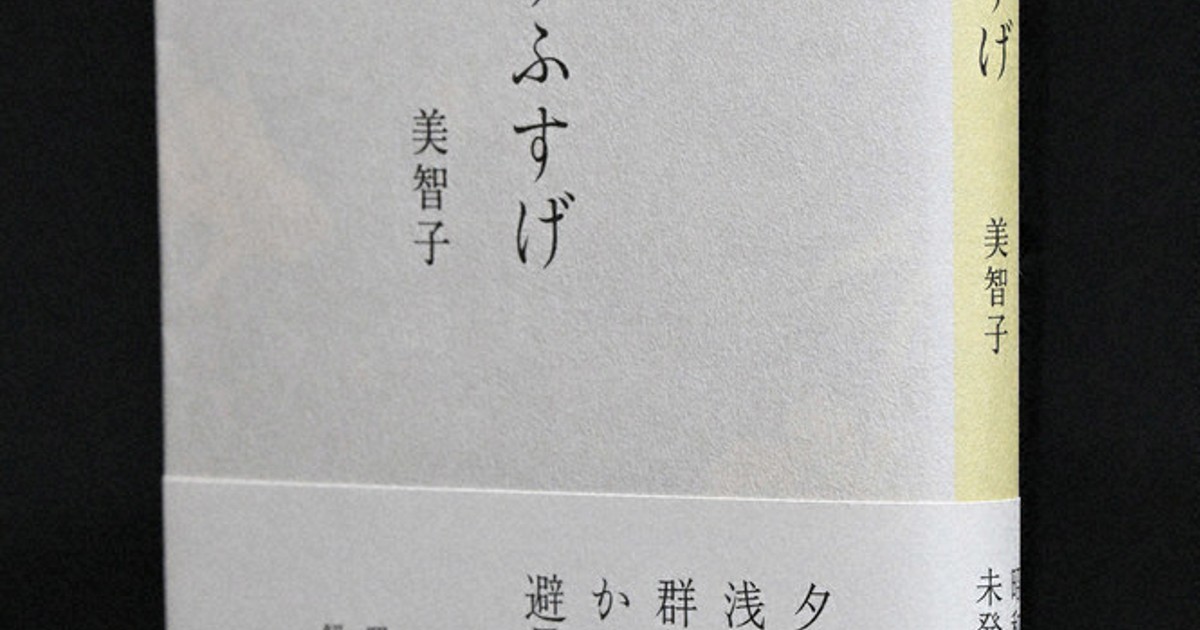 ふすげ
美智子
夕
浅
群
か
避
げ
美智子
未発